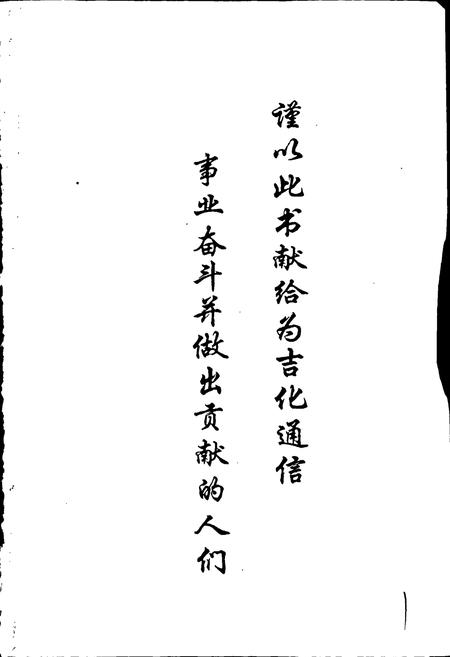 谨以此书献给为吉化通信
事业奋斗并做出贡献的人们